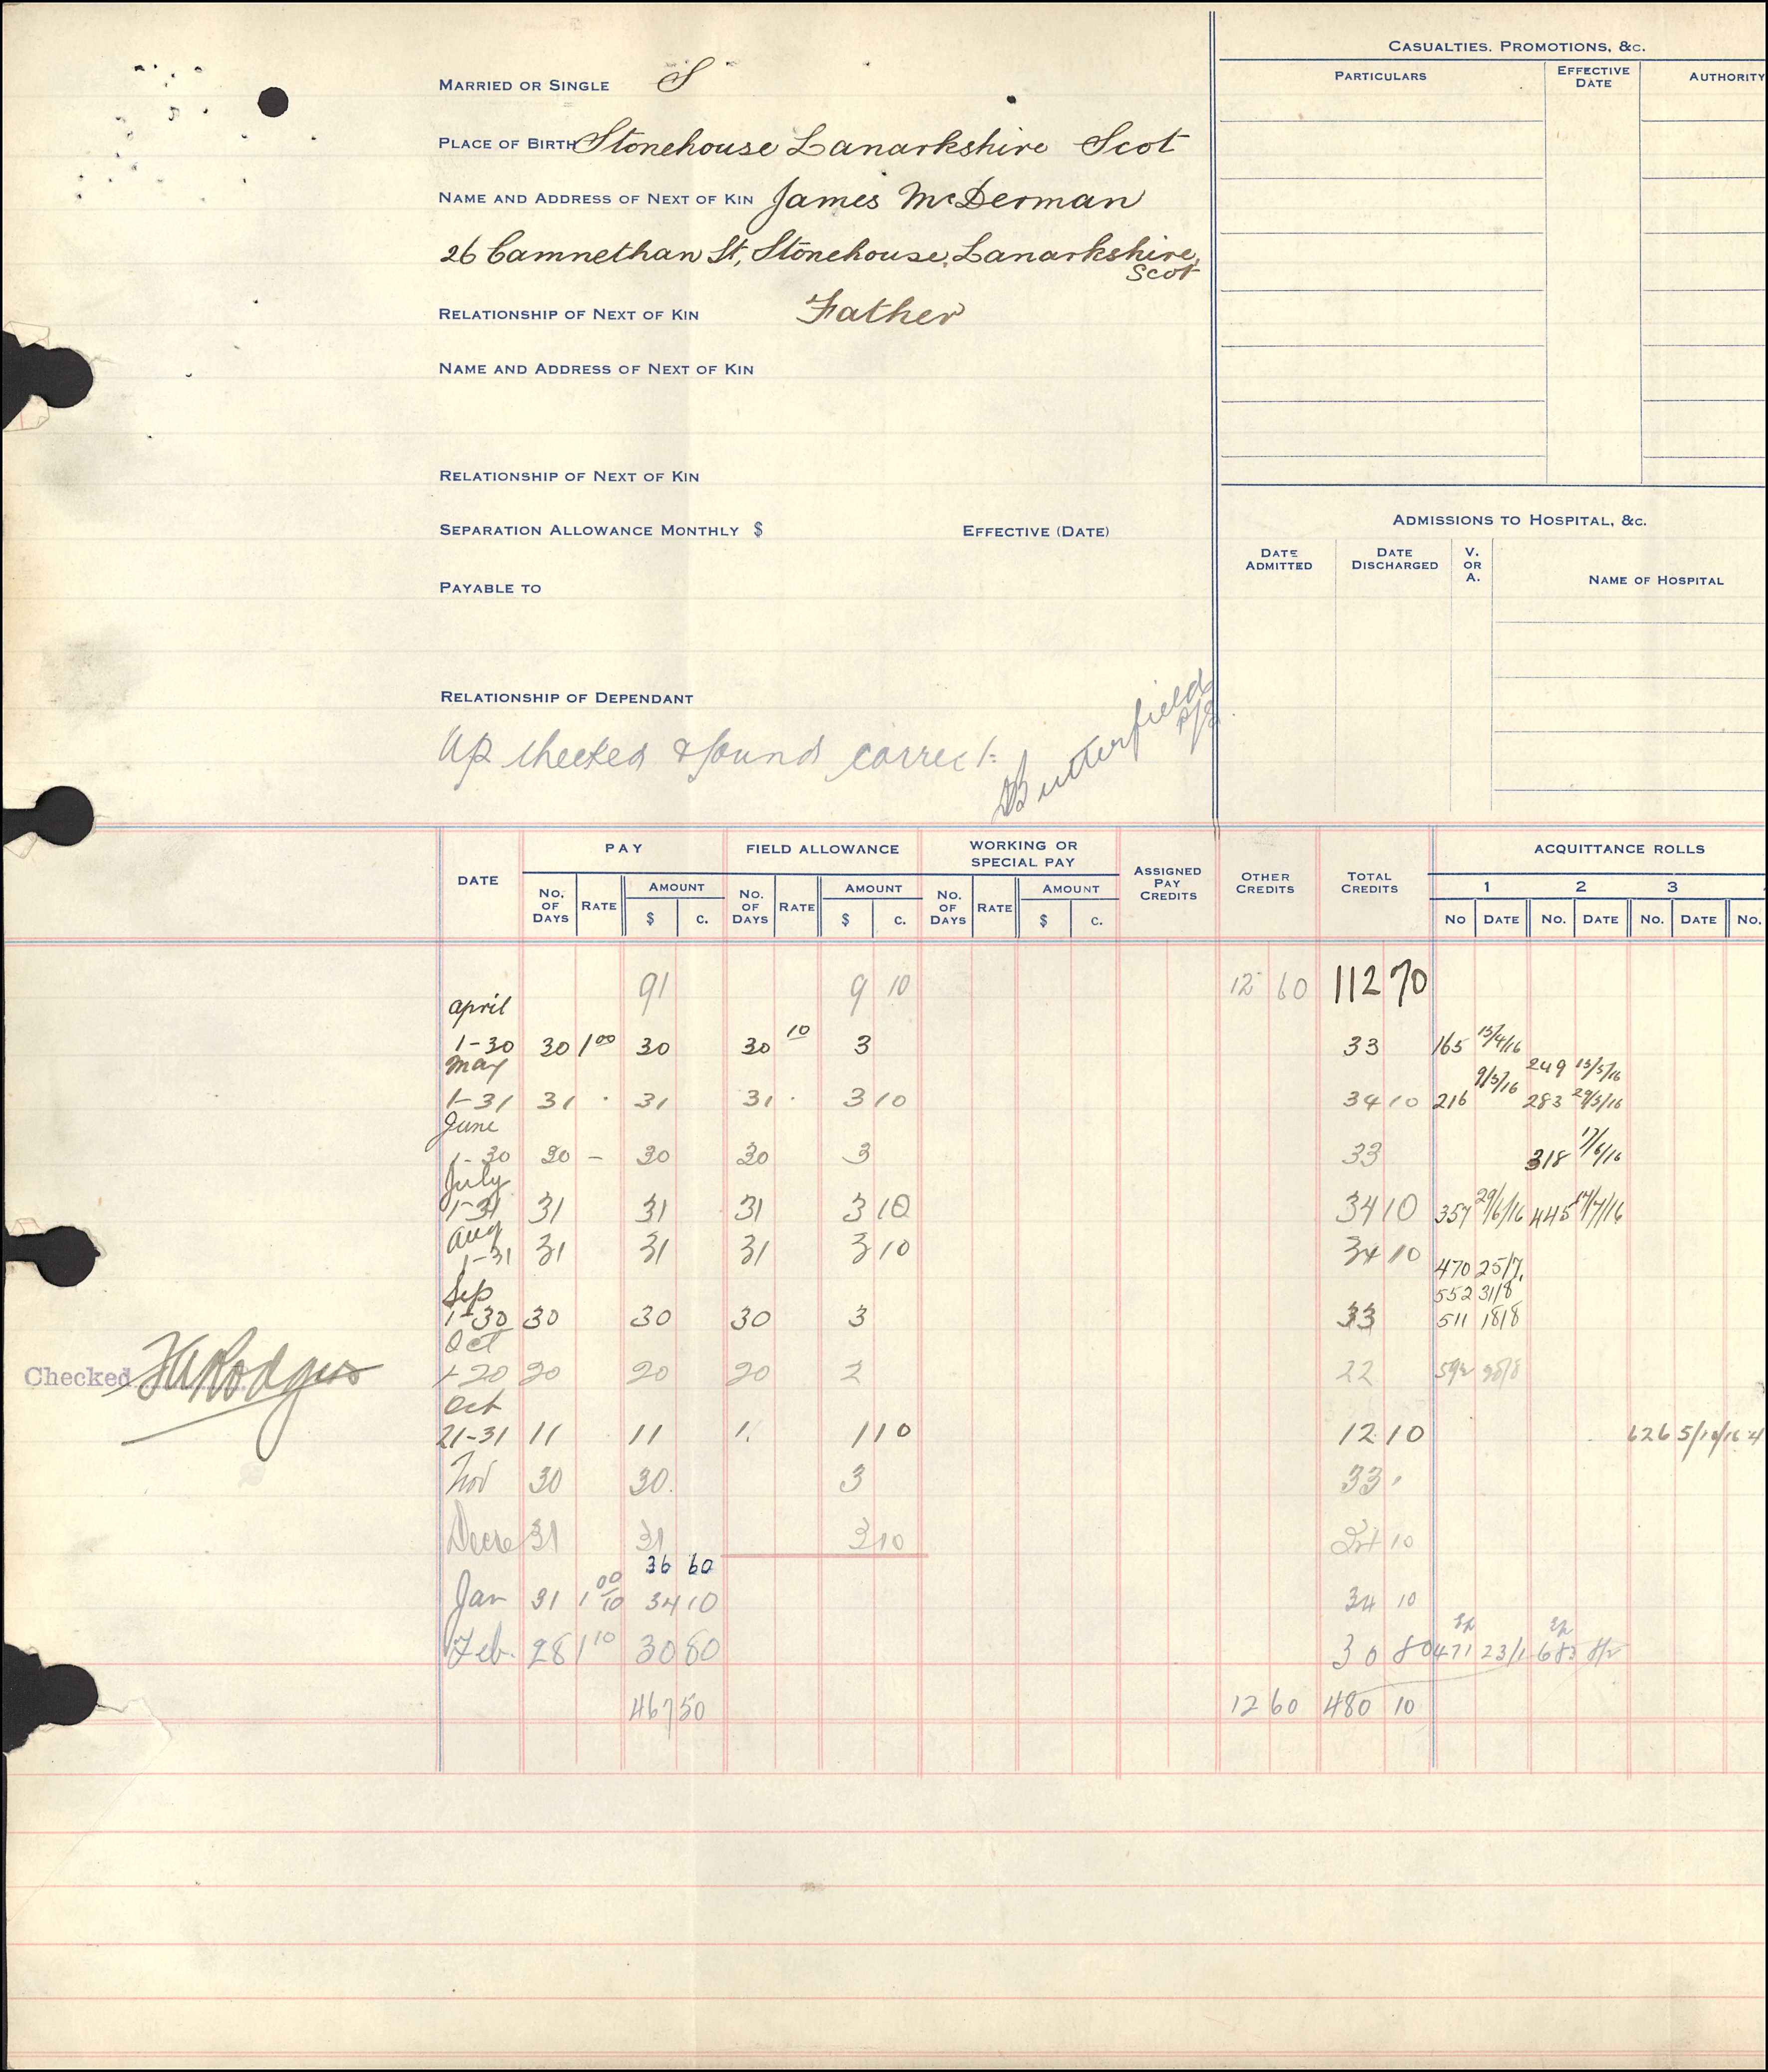 MARRIED OR SINGLE S
PLACE OF BIRTH Stonehouse Lanarkshire Scot
NAME AND ADDRESS OF NEXT OF KIN James McDerman
26 Camnethan St, Stonehouse, Lanarkshire,
Scot
RELATIONSHIP OF NEXT OF KIN Father
NAME AND ADDRESS OF NEXT OF KIN
RELATIONSHIP OF NEXT OF KIN
SEPARATION ALLOWANCE MONTHLY $ EFFECTIVE (DATE)
PAYABLE TO
RELATIONSHIP OF DEPENDANT
checked & found correct
Butterfield
CASUALTIES. PROMOTIONS, &C.
PARTICULARS EFFECTIVE DATE AUTHORITY
ADMISSIONS TO HOSPITAL, &C.
DATE ADMITTED DATE DISCHARGED V. OR A. NAME OF HOSPITAL
DATE PAY FIELD ALLOWANCE WORKING OR SPECIAL PAY ASSIGNED PAY CREDITS OTHER CREDITS TOTAL CREDITS ACQUITTANCE ROLLS
NO. OF DAYS RATE AMOUNT $ C. NO. OF DAYS RATE AMOUNT $ C. NO. OF DAYS RATE AMOUNT $ C. 1 2 3
NO DATE NO. DATE NO. DATE NO.
91 9 10 12 60 112 70
April
1-30 30 1 00 30 30 10 3 33 165 15/4/16
May 249 15/5/16
1-31 31 31 31 3 10 34 10 216 9/5/16 283 29/5/16
June
1-30 30 - 30 30 3 33 318 17/6/16
July
1-31 31 31 31 3 10 34 10 357 29/6/16 445 17/7/16
Aug
1-31 31 31 31 3 10 34 10 470 25/7
Sep 552 31/8
1-30 30 30 30 3 33 511 18/8
Oct
1-20 20 20 20 2 22 592
Checked
Oct
21-31 11 11 1 10 12 10 626 5/10/16
Nov 30 30 3 33
Dec 31 31 3 10 34 10
36 60
Jan 31 1 00 10 34 10 34 10
Feb. 28 1 10 30 80 30 80 471 23/1 683 8/2
467 50 12 60 480 10